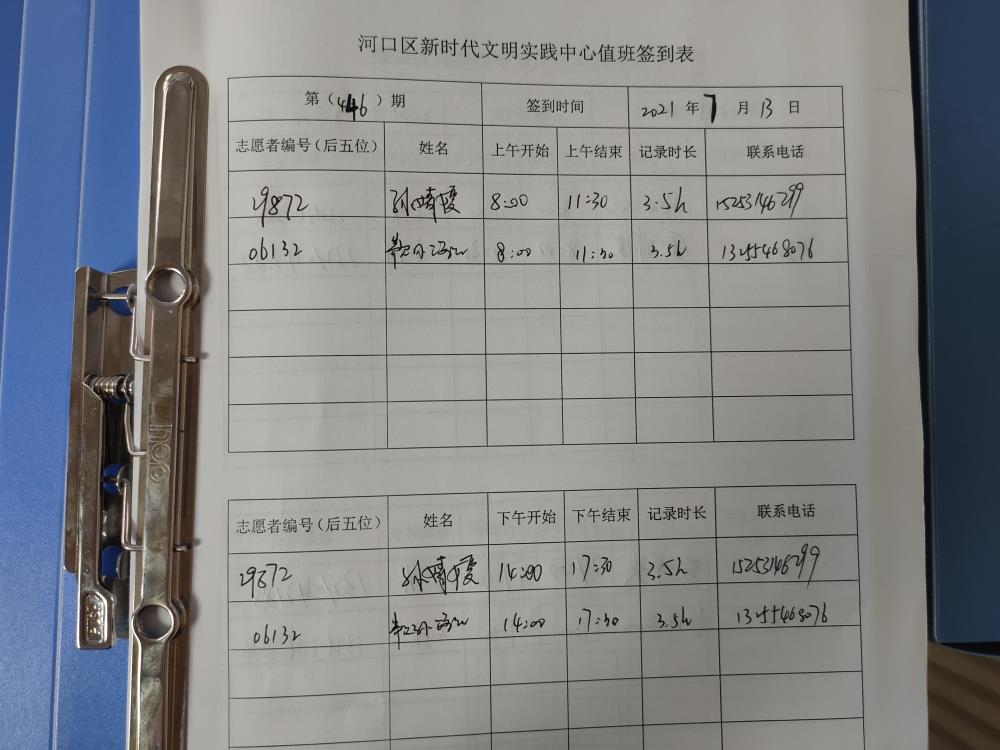 河口区新时代文明实践中心值班签到表
第（446）期 签到时间 2021 年 7 月 13 日
志愿者编号（后五位） 姓名 上午开始 上午结束 记录时长 联系电话
29872 孙晴霞 8:00 11:30 3.5h 15253146299
06132 8:00 11:30 3.5h 13255468076
志愿者编号（后五位） 姓名 下午开始 下午结束 记录时长 联系电话
29872 孙晴霞 14:00 17:30 3.5h 15253146299
06132 14:00 17:30 3.5h 13255468076